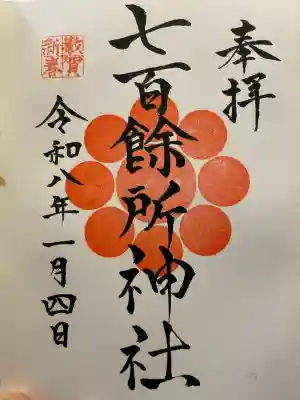 奉拝
七百餘所神社
令和八年一月四日
敬賀
新春